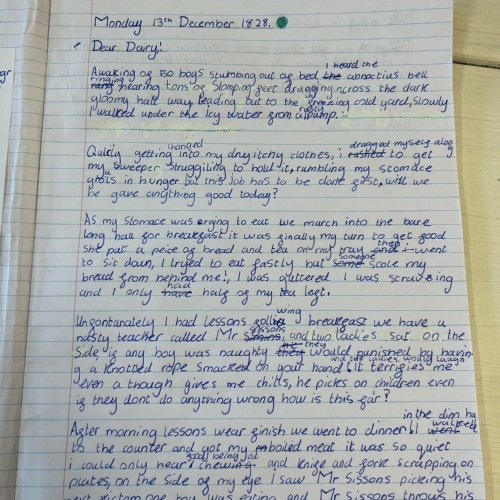 Monday 13th December 1828.
Dear Dairy!
Awaking of 50 boys stumbing out of bed the I heard the abnoctius bell
rang ringing hearing tons of stomping feet dragging across the dark
gloomy hall way leading out to the freezing cold yard, slowly
I walked under the icy water from a rusty pump.
Quicly getting changed into my dry itchy clothes, i rushed dragged myself along to get
my sweeper struggiling to hold it, rumbling my stomace
grols in hunger but this job has to be done first, will we
be gave anything good today?
As my stomace was crying to eat we march into the bare
long hall for breakfast it was finally my turn to get food
She put a peice of bread and tea on my tray and i then went
to sit down, I tryed to eat fastly but some someone stole my
bread from behind me!, I was guttered I was straving
and I only have had half of my tea left.
Unfortanately I had lessons following breakfast we have a
nasty teacher called Mr Simins Sissons, and two ladies sat on the
side if any boy was naughty they he they would punished by havin
g a knotted rope smacked on your hand and the ladies would laugh! it terrifies me
even a though gives me chills, he picks on children even
if they dont do anything wrong how is this fair?
After morning lessons wear finish we went to dinner! I went walked in the dim ha
to the counter and got my boiled meat it was so quiet
i could only hear chewing food being eat and knife and fork scrapping on
plates, on the side of my eye I saw Mr Sissons picking his
next victom one boy was eating and Mr Sissons throws his